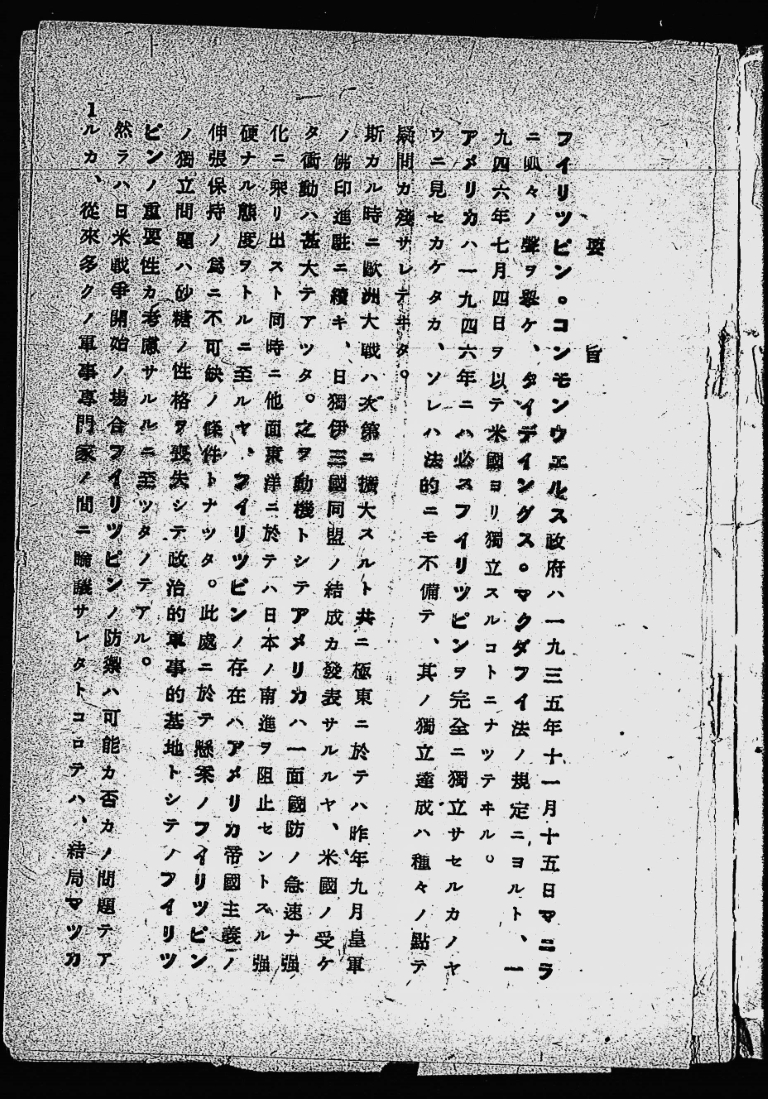 要旨
フイリツピン。コンモンウエルス政府ハ一九三五年十一月十五日マニラ
ニ呱々ノ聲ヲ擧ケ、タイデイングス。マクダフイ法ノ規定ニヨルト、一
九四六年七月四日ヲ以テ米國ヨリ獨立スルコトニナツテヰル。
アメリカハ一九四六年ニハ必スフイリツピンヲ完全ニ獨立サセルカノヤ
ウニ見セカケタカ、ソレハ法的ニモ不備テ、其ノ獨立達成ハ種々ノ點テ
疑問カ殘サレテヰタ。
斯カル時ニ歐洲大戰ハ次第ニ擴大スルト共ニ極東ニ於テハ昨年九月皇軍
ノ佛印進駐ニ續キ、日獨伊三國同盟ノ結成カ發表サルルヤ、米國ノ受ケ
タ衝動ハ甚大テアツタ。之ヲ動機トシテアメリカハ一面國防ノ急速ナ强
化ニ乘リ出スト同時ニ他面東洋ニ於テハ日本ノ南進ヲ阻止セントスル强
硬ナル態度ヲトルニ至ルヤ、フイリツピンノ存在ハアメリカ帝國主義ノ
伸張保持ノ爲ニ不可缺ノ條件トナツタ。此處ニ於テ懸案ノフイリツピン
ノ獨立問題ハ砂糖ノ性格ヲ喪失シテ政治的軍事的基地トシテノフイリツ
ピンノ重要性カ考慮サルルニ至ツタノテアル。
然ラハ日米戰爭開始ノ場合フイリツピンノ防禦ハ可能カ否カノ問題テア
ルカ、從來多クノ軍事專門家ノ間ニ論議サレタトコロテハ、結局マツカ
1